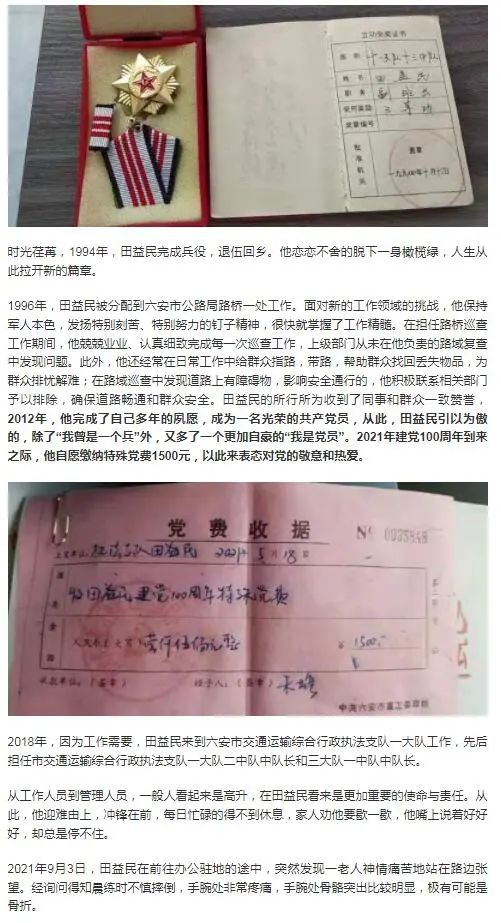 立功受奖证书
姓名
田益民
职务
副班长
三等功
奖章编号
批准机关
时光荏苒，1994年，田益民完成兵役，退伍回乡。他恋恋不舍的脱下一身橄榄绿，人生从
此拉开新的篇章。
1996年，田益民被分配到六安市公路局路桥一处工作。面对新的工作领域的挑战，他保持
军人本色，发扬特别刻苦、特别努力的钉子精神，很快就掌握了工作精髓。在担任路桥巡查
工作期间，他兢兢业业、认真细致完成每一次巡查工作，上级部门从未在他负责的路域复查
中发现问题。此外，他还经常在日常工作中给群众指路，带路，帮助群众找回丢失物品，为
群众排忧解难；在路域巡查中发现道路上有障碍物，影响安全通行的，他积极联系相关部门
予以排除，确保道路畅通和群众安全。田益民的所行所为收到了同事和群众一致赞誉，
2012年，他完成了自己多年的夙愿，成为一名光荣的共产党员，从此，田益民引以为傲
的，除了“我曾是一个兵”外，又多了一个更加自豪的“我是党员”。2021年建党100周年到来
之际，他自愿缴纳特殊党费1500元，以此来表态对党的敬意和热爱。
党费收据
田益民 2021年5月18日
收田益民建党100周年特殊党费
壹仟伍佰元整 ¥1500.
2018年，因为工作需要，田益民来到六安市交通运输综合行政执法支队一大队工作，先后
担任市交通运输综合行政执法支队一大队二中队中队长和三大队一中队中队长。
从工作人员到管理人员，一般人看起来是高升，在田益民看来是更加重要的使命与责任。从
此，他迎难由上，冲锋在前，每日忙碌的得不到休息，家人劝他要歇一歇，他嘴上说着好好
好，却总是停不住。
2021年9月3日，田益民在前往办公驻地的途中，突然发现一老人神情痛苦地站在路边张
望。经询问得知晨练时不慎摔倒，手腕处非常疼痛，手腕处骨骼突出比较明显，极有可能是
骨折。